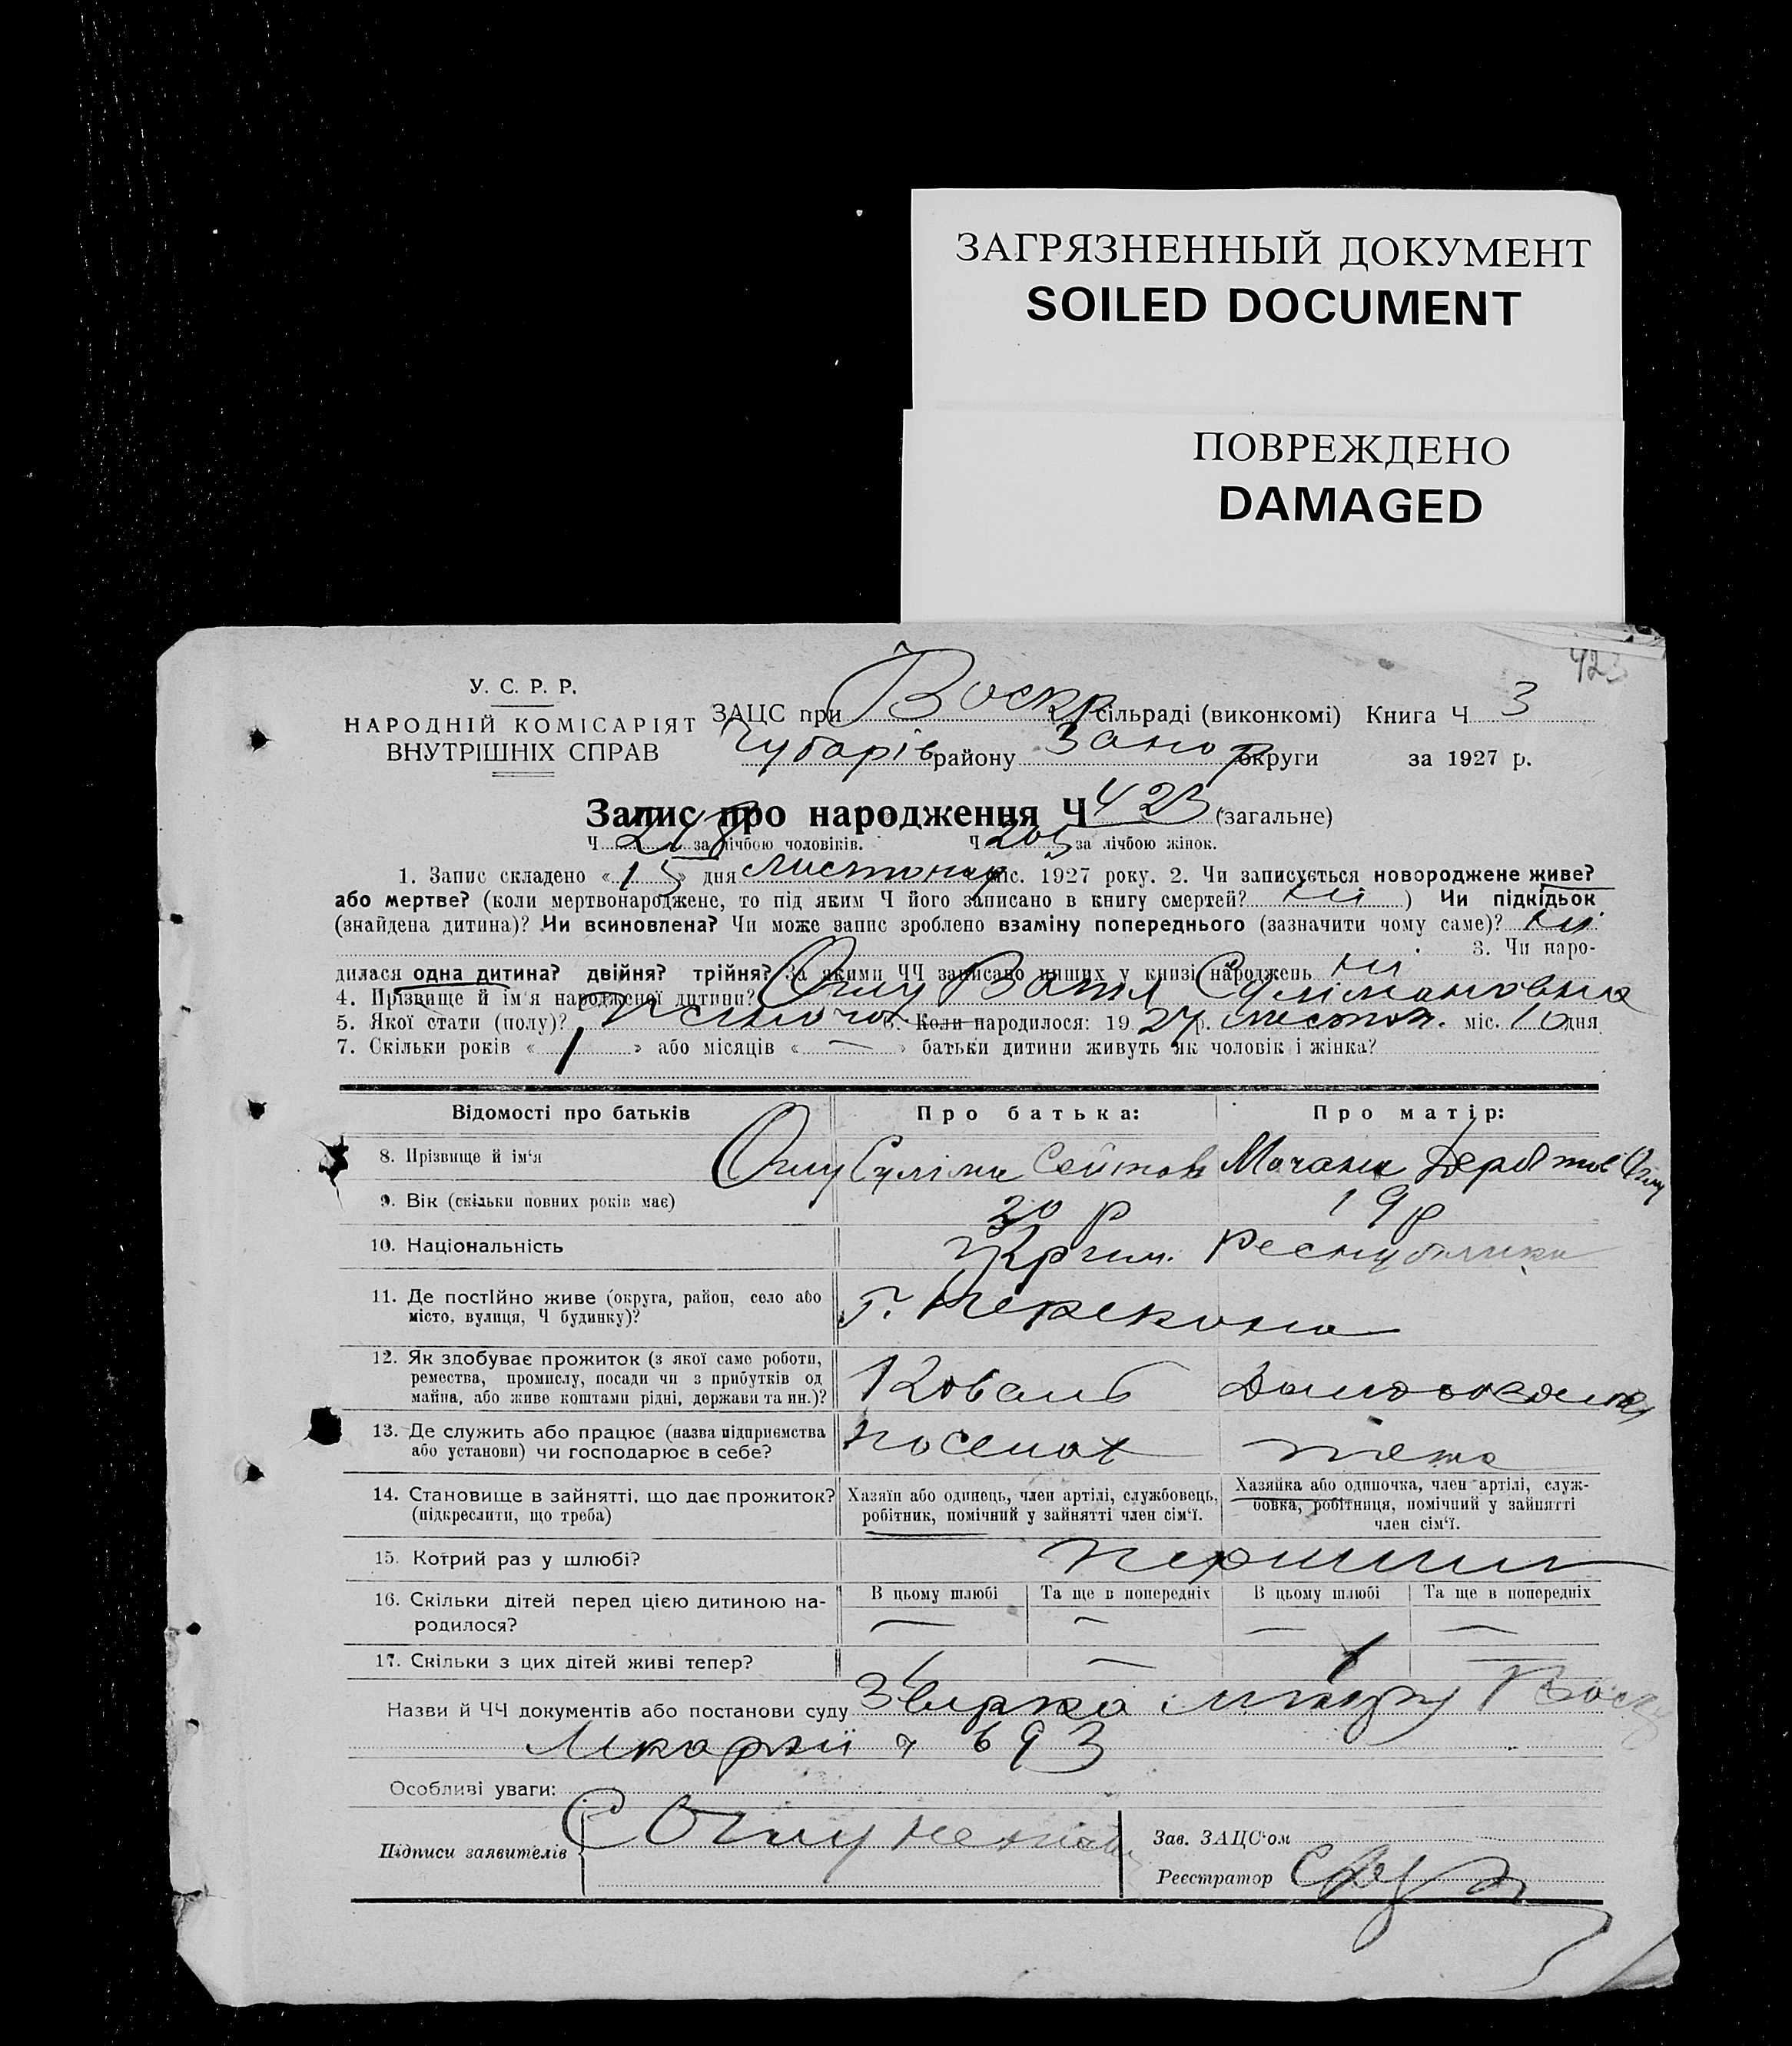 ЗАГРЯЗНЕННЫЙ ДОКУМЕНТ
SOILED DOCUMENT
ПОВРЕЖДЕНО
DAMAGED
423
У. С. Р. Р.
НАРОДНІЙ КОМІСАРІЯТ
ВНУТРІШНІХ СПРАВ
ЗАЦС при Воскр сільраді (виконкомі) Книга Ч 3
Чубарів району Запор округи за 1927 р.
Запис про народження Ч 423 (загальне)
Ч 218 за лічбою чоловіків. Ч 205 за лічбою жінок.
1. Запис складено «15» дня листопад міс. 1927 року. 2. Чи записується новороджене живе?
або мертве? (коли мертвонароджене, то під яким Ч його записано в книгу смертей? ні ) Чи підкідьок
(знайдена дитина)? Чи всиновлена? Чи може запис зроблено взаміну попереднього (зазначити чому саме)? ні
3. Чи наро-
дилася одна дитина? двійня? трійня? За якими ЧЧ записано инших у книзі народжень ні
4. Прізвище й ім'я народженої дитини? Сулімановна
5. Якої стати (полу)? 6. Коли народилося: 1927 р. листоп. міс. 10 дня
7. Скільки років « 1 » або місяців « — » батьки дитини живуть як чоловік і жінка?
Відомості про батьків Про батька: Про матір:
8. Прізвище й ім'я Огли Суліман Сеітов
9. Вік (скільки повних років має) 30 р 19 р
10. Національність Крим. Республики
11. Де постійно живе (округа, район, село або
місто, вулиця, Ч будинку)?
12. Як здобуває прожиток (з якої саме роботи,
ремества, промислу, посади чи з прибутків од
майна, або живе коштами рідні, держави та ин.)?
Коваль
13. Де служить або працює (назва підприємства
або установи) чи господарює в себе?
по селах теж
14. Становище в зайнятті, що дає прожиток?
(підкреслити, що треба)
Хазяїн або одинець, член артілі, службовець,
робітник, помічний у зайнятті член сім'ї.
Хазяйка або одиночка, член артілі, служ-
бовка, робітниця, помічний у зайнятті
член сім'ї.
15. Котрий раз у шлюбі? перший
16. Скільки дітей перед цією дитиною на-
родилося?
В цьому шлюбі Та ще в попередніх В цьому шлюбі Та ще в попередніх
— — — —
17. Скільки з цих дітей живі тепер? 1 — 1 —
Назви й ЧЧ документів або постанови суду
Лікарні ч 693
Особливі уваги:
Підписи заявителів
Зав. ЗАЦС'ом
Реєстратор